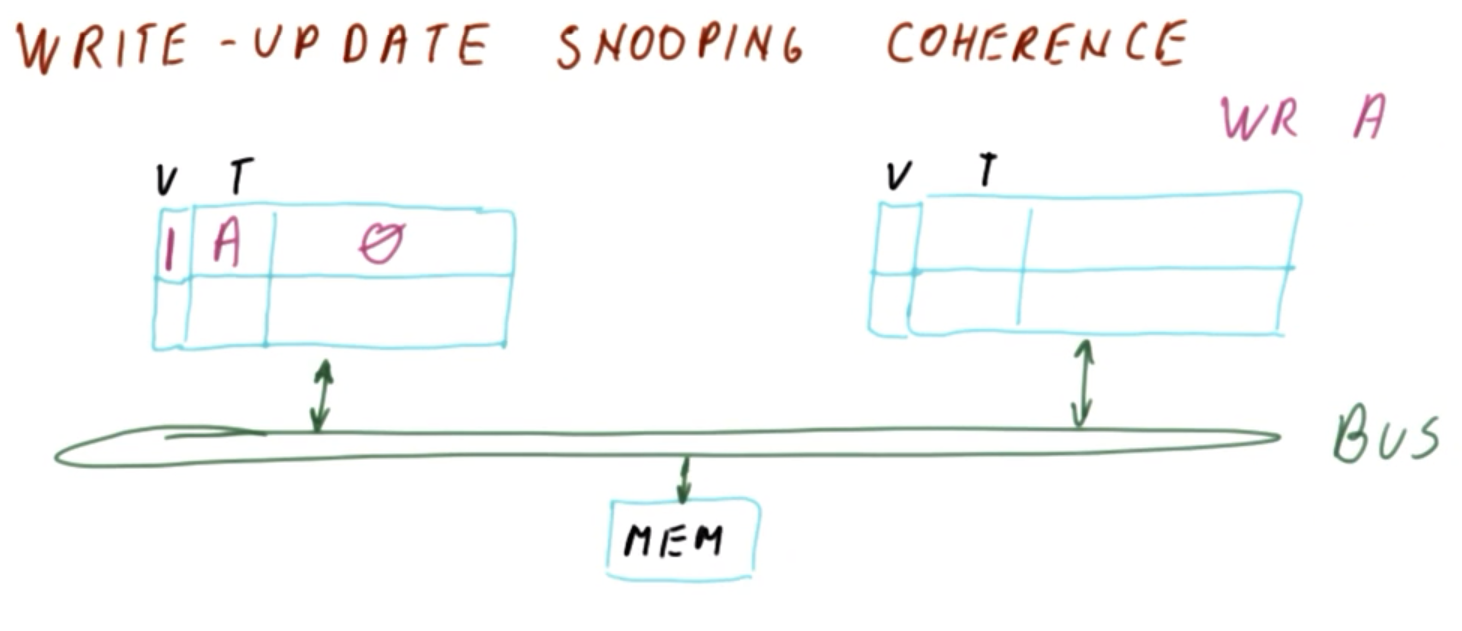 WRITE-UPDATE SNOOPING COHERENCE
WR A
V T
V T
1 A 0
BUS
MEM